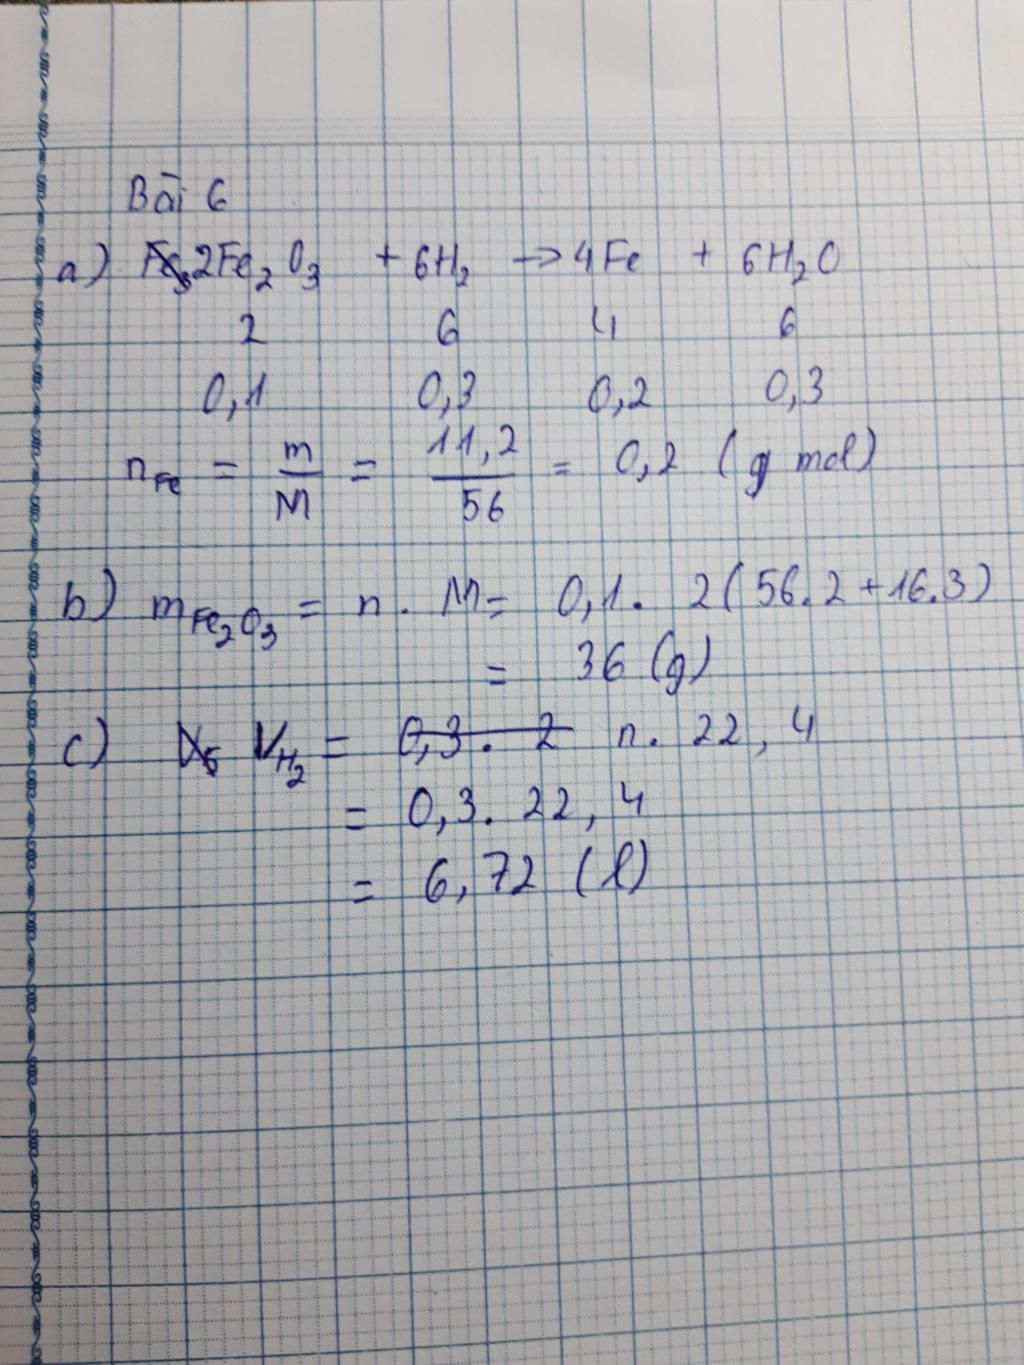 Bài 6
a) 2Fe₂O₃ + 6H₂ → 4Fe + 6H₂O
2 6 4 6
0,1 0,3 0,2 0,3
nFe = m/M = 11,2/56 = 0,2 (mol)
b) mFe₂O₃ = n . M = 0,1 . 2(56.2+16.3)
= 36 (g)
c) VH₂ = 0,3 . 2 n . 22,4
= 0,3 . 22,4
= 6,72 (l)